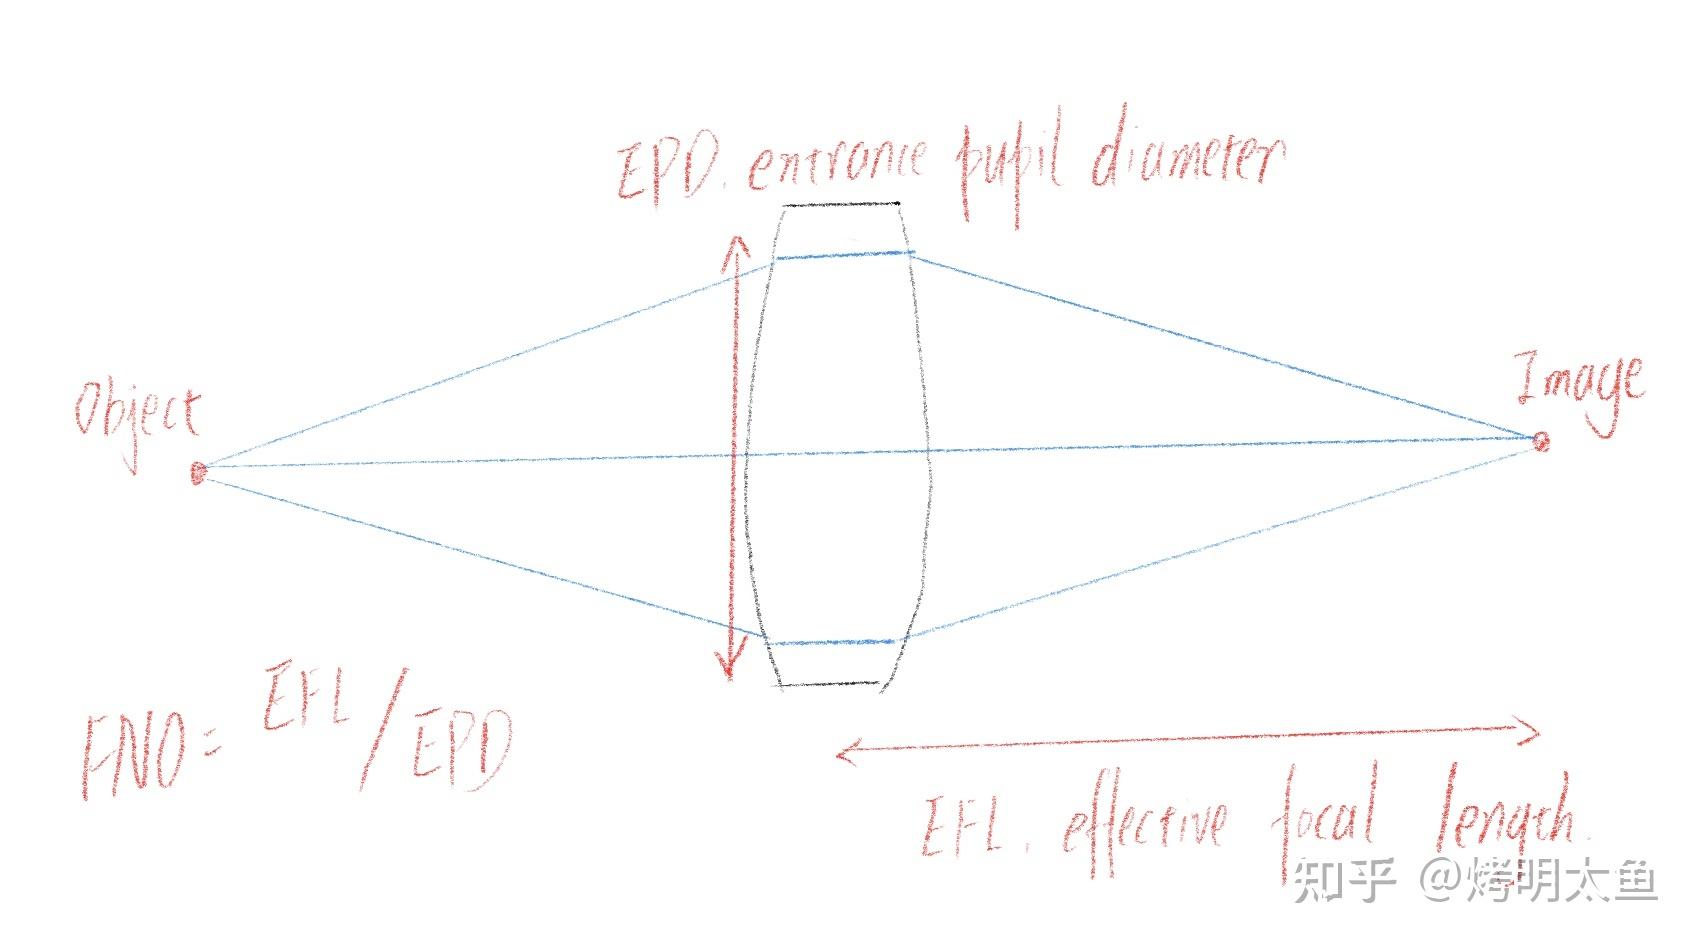 EPD. entrance pupil diameter
Object
Image
FNO = EFL/EPD
EFL. effective focal length.
知乎 @烤明太鱼